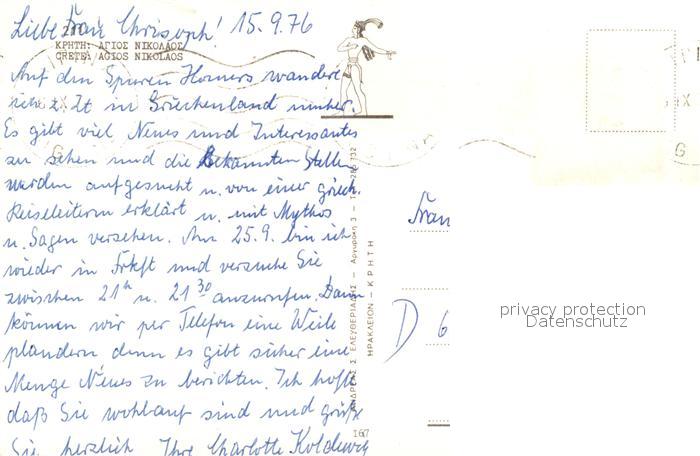 Liebe Frau Chrisoph! 15.9.76
ΚΡΗΤΗ: ΑΓΙΟΣ ΝΙΚΟΛΑΟΣ
CRETE: AGIOS NIKOLAOS
Auf den Spuren Homers wandere
ich z. Zt in Griechenland umher.
Es gibt viel Neues und Interessantes
zu sehen und die Bekannten Stellen
werden aufgesucht u. von einer griech.
Reiseleiterin erklärt u. mit Mythos
u. Sagen versehen. Am 25.9. bin ich
wieder in Frkft und versuche Sie
zwischen 21 h u. 21 30 anzurufen. Dann
können wir per Telefon eine Weile
plaudern denn es gibt sicher eine
Menge Neues zu berichten. Ich hoffe
daß Sie wohlauf sind und grüße
Sie herzlich Ihre Charlotte
ΑΝΔΡΕΑΣ Σ. ΕΛΕΥΘΕΡΙΑΔΗΣ — Αργυράκη 3 —
ΗΡΑΚΛΕΙΟΝ - ΚΡΗΤΗ
167
Frau
D 6
privacy protection
Datenschutz